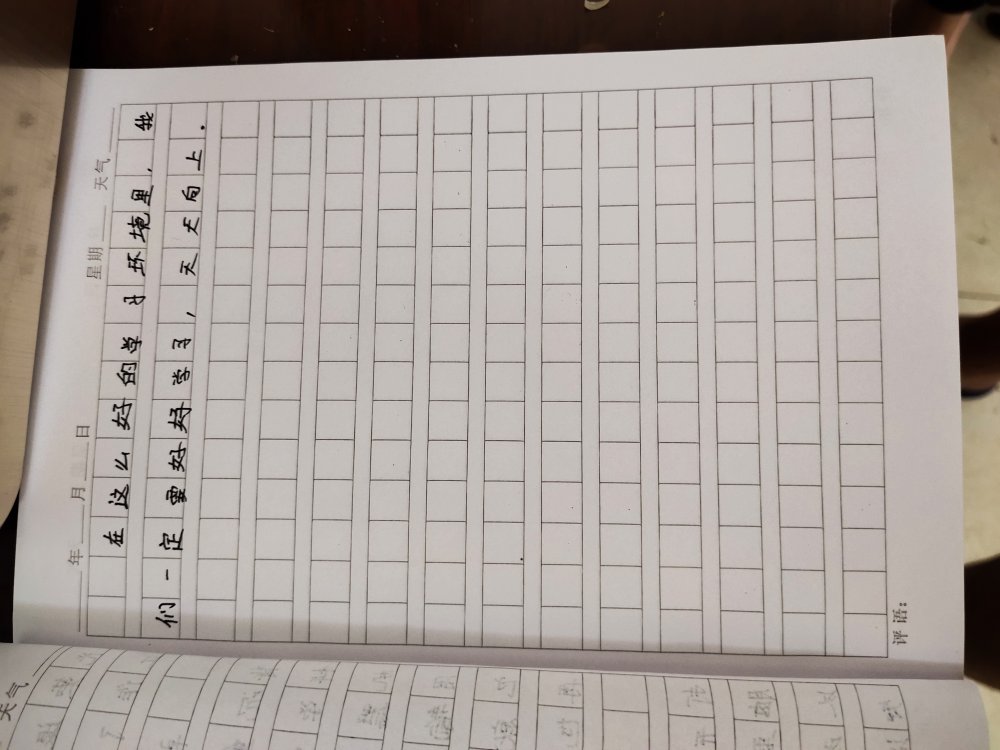 年 月 日 星期 天气
在这么好的学习环境里，我
们一定要好好学习，天天向上.
评语：
天气